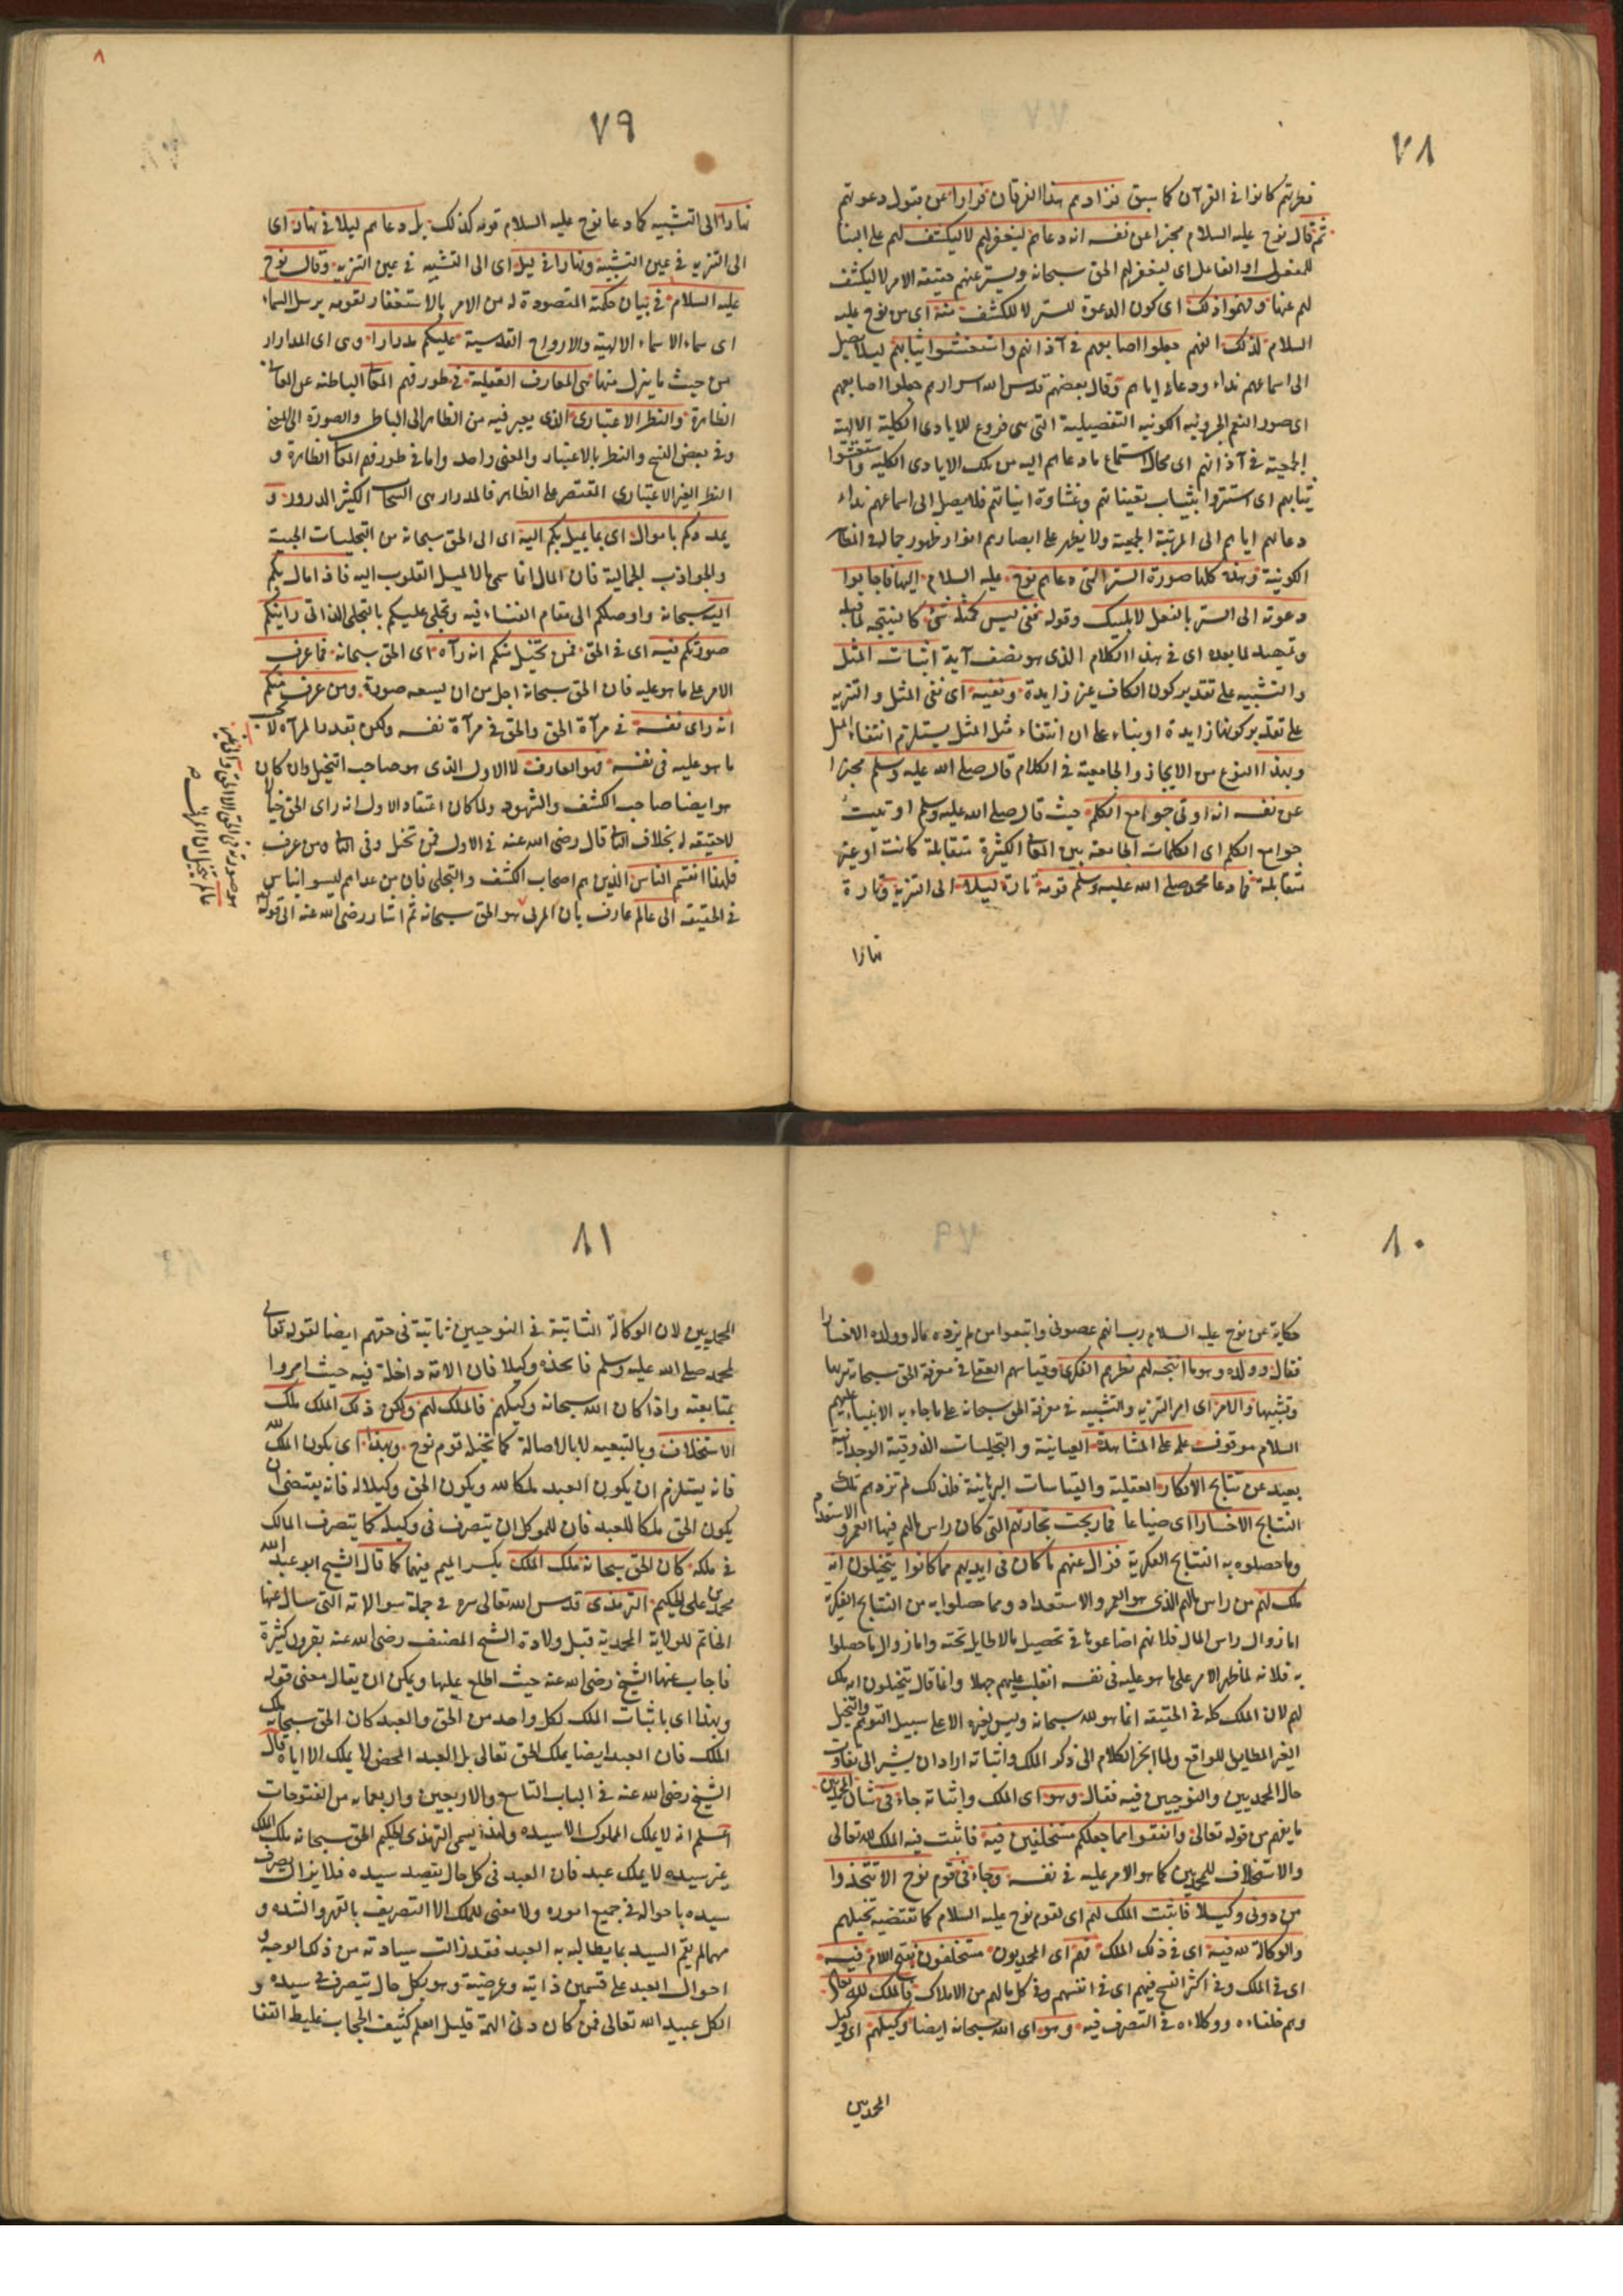 ٧٨
فطرتهم كانوا فى القرآن كما سبق فزادهم هذا الفرقان فرارا عن قبول دعوتهم
ثم قال نوح عليه السلام مخبرا عن نفسه انه دعاهم ليغفر لهم لا ليكشف لهم على البناء
للمفعول او الفاعل اى ليغفر لهم الحق سبحانه ويستر عنهم حقيقة الامر لا ليكشف
لهم عنها وفهموا ذلك اى كون الدعوة للستر لا للكشف منه اى من نوح عليه
السلام لذلك انهم جعلوا اصابعهم فى آذانهم واستغشوا ثيابهم ليلا يصل
الى اسماعهم نداء ودعاء اياهم وقال بعضهم قدس الله اسرارهم جعلوا اصابعهم
اى صور النعم الجزوئية الكونية التفصيلية التى هى فروع للايادى الكلية الالهية
الجمعية فى آذانهم اى محال استماع ما دعاهم اليه من تلك الايادى الكلية واستغشوا
ثيابهم اى استتروا بثياب تعيناتهم وغشاوة انياتهم فلا يصل الى اسماعهم نداء
دعائهم اياهم الى المرتبة الجمعية ولا يظهر على ابصارهم انوار ظهور جماله فى المظاهر
الكونية وهذه كلها صورة الستر التى دعاهم نوح عليه السلام اليها فاجابوا
دعوته الى الستر بالفعل لا بلبيك وقوله ففى ليس كمثله شئ كالنتيجة لما قبله
وتمهيد لما بعده اى فى هذا الكلام الذى هو نصف آية اثبات المثل
والتشبيه على تقدير كون الكاف غير زايدة ونفيه اى نفى المثل والتنزيه
على تقدير كونها زايدة او بناء على ان انتفاء مثل المثل يستلزم انتفاء المثل
وبهذا النوع من الايجاز والجامعية فى الكلام قال صلى الله عليه وسلم مخبرا
عن نفسه انه اوتى جوامع الكلم حيث قال صلى الله عليه وسلم اوتيت
جوامع الكلم اى الكلمات الجامعة بين المعانى الكثيرة متقابلة كانت او غير
متقابلة فما دعا محمد صلى الله عليه وسلم قومه تارة ليلا الى التنزيه وتارة
نهارا
٨
٧٩
نهارا الى التشبيه كما دعا نوح عليه السلام قومه كذلك بل دعاهم ليلا فى نهار اى
الى التنزيه فى عين التشبيه ونهارا فى ليل اى الى التشبيه فى عين التنزيه وقال نوح
عليه السلام فى بيان حكمته المقصودة له من الامر بالاستغفار لقومه يرسل السماء
اى سماء الاسماء الالهية والارواح القدسية عليكم مدرارا وهى اى المدرار
من حيث ما ينزل منها هى المعارف العقلية فى طور فهم المعانى الباطنه عن المعانى
الظاهرة والنظر الاعتبارى الذى يعبر فيه من الظاهر الى الباطن والصورة الى المعنى
وفى بعض النسخ والنظر بالاعتبار والمعنى واحد واما فى طور فهم المعانى الظاهرة و
النظر الغير الاعتبارى المقتصر على الظاهر فالمدرار هى السحاب الكثير الدرور و
يمددكم باموال اى بما يميل بكم اليه اى الى الحق سبحانه من التجليات الحبية
والجواذب الجمالية فان المال انما سمى مالا لميل القلوب اليه فاذا مال بكم
اليه سبحانه واوصلكم الى مقام الفناء فيه وتجلى عليكم بالتجلى الذاتى رايتم
صورتكم فيه اى فى الحق فمن تخيل منكم انه رآه اى الحق سبحانه فما عرف
الامر على ما هو عليه فان الحق سبحانه اجل من ان يسعه صورة ومن عرف منكم
انه راى نفسه فى مرآة الحق والحق فى مرآة نفسه ولكن بقدر المرآة لا
ما هو عليه فى نفسه فهو العارف لا الاول الذى هو صاحب التخيل وان كان
هو ايضا صاحب الكشف والشهود ولما كان اعتقاد الاول انه راى الحق خيالا
لا حقيقه له بخلاف الثانى قال رضى الله عنه فى الاول فمن تخيل وفى الثانى من عرف
فلهذا انقسم الناس الذين هم اصحاب الكشف والتجلى فان من عداهم ليسوا بناس
فى الحقيقه الى عالم عارف بان المرئى هو الحق سبحانه ثم اشار رضى الله عنه الى قوله
٨٠
حكاية عن نوح عليه السلام رب انهم عصونى واتبعوا من لم يزده ماله وولده الا خسارا
فقال وولده وهو ما انتجه لهم نظرهم الفكرى وقياسهم العقلى فى معرفة الحق سبحانه تنزيها
وتشبيها والامر اى امر التنزيه والتشبيه فى معرفة الحق سبحانه على ما جاء به الانبياء عليهم
السلام موقوف علمه على المشاهدة العيانية والتجليات الذوقية الوجدانية
بعيد عن نتايج الافكار العقلية والقياسات البرهانية فلذلك لم تزدهم تلك
النتايج الا خسارا اى ضياعا فما ربحت تجارتهم التى كان راس مالهم فيها العمر والاستعداد
وما حصلوه به النتايج الفكرية فزال عنهم ما كان فى ايديهم مما كانوا يتخيلون انه
ملك لهم من راس مالهم الذى هو العمر والاستعداد ومما حصلوا به من النتايج الفكرية
اما زوال راس المال فلانهم اضاعوها فى تحصيل ما لا طايل تحته واما زوال ما حصلوا
به فلانه لما ظهر الامر على ما هو عليه فى نفسه انقلب عليهم جهلا وانما قال يتخيلون انه ملك
لهم لان الملك كله فى الحقيقه انما هو لله سبحانه وليس لغيره الا على سبيل التوهم والتخيل
الغير المطابق للواقع ولما انجر الكلام الى ذكر الملك واثباته اراد ان يشير الى تفاوت
حال المحمديين والنوحيين فيه فقال وهو اى الملك واثباته جاء فى شان المحمديين
ما يفهم من قوله تعالى وانفقوا مما جعلكم مستخلفين فيه فاثبت فيه الملك لله تعالى
والاستخلاف للمحمديين كما هو الامر عليه فى نفسه وجاء فى قوم نوح الا تتخذوا
من دونى وكيلا فاثبت الملك لهم اى لقوم نوح عليه السلام كما تقتضيه تخيلهم
والوكالة لله فيه اى فى ذلك الملك فهم اى المحمديون مستخلفون بفتح اللام فيه
اى فى الملك وفى اكثر النسخ فيهم اى فى انفسهم وفى كل مالهم من الاملاك فالملك لله تعالى
وهم خلفاءه ووكلاءه فى التصرف فيه وهو اى الله سبحانه ايضا وكيلهم اى وكيل
المحمديين
٨١
المحمديين لان الوكالة الثابتة فى النوحيين ثابتة فى حقهم ايضا لقوله تعالى
لمحمد صلى الله عليه وسلم فاتخذه وكيلا فان الامة داخلة فيه حيث امروا
بمتابعته واذا كان الله سبحانه وكيلهم فالملك لهم ولكن ذلك الملك ملك
الاستخلاف وبالتبعيه لا بالاصالة كما تخيله قوم نوح وبهذا اى بكون الملك لله
فانه يستلزم ان يكون العبد ملكا لله ويكون الحق وكيلا له فانه يقتضى ان
يكون الحق ملكا للعبد فان للموكل ان يتصرف فى وكيله كما يتصرف المالك
فى ملكه كان الحق سبحانه ملك الملك بكسر الميم فيهما كما قال الشيخ ابو عبد الله
محمد بن على الحكيم الترمذى قدس الله تعالى سره فى جملة سوالاته التى سال عنها
الخاتم للولاية المحمدية قبل ولادة الشيخ المصنف رضى الله عنه بقرون كثيرة
فاجاب عنها الشيخ رضى الله عنه حيث اطلع عليها ويمكن ان يقال معنى قوله
وبهذا اى باثبات الملك لكل واحد من الحق والعبد كان الحق سبحانه ملك
الملك فان العبد ايضا يملك الحق تعالى بل العبد المحض لا يملك الا اياه قال
الشيخ رضى الله عنه فى الباب التاسع والاربعين واربعمايه من الفتوحات
اعلم انه لا يملك المملوك الا سيده ولهذا يسمى الترمذى الحكيم الحق سبحانه ملك الملك
غير سيده لا يملك عبد فان العبد فى كل حال يقصد سيده فلا يزال يصرف
سيده باحواله فى جميع اموره ولا معنى للملك الا التصريف بالقهر والشده و
مهما لم يقم السيد بما يطالبه به العبد فقد زالت سيادته من ذلك الوجه و
احوال العبد على قسمين ذاتيه وعرضية وهو بكل حال يتصرف فى سيده و
الكل عبيد الله تعالى فمن كان دنى الهمة قليل العلم كثيف الحجاب غليظ القفا